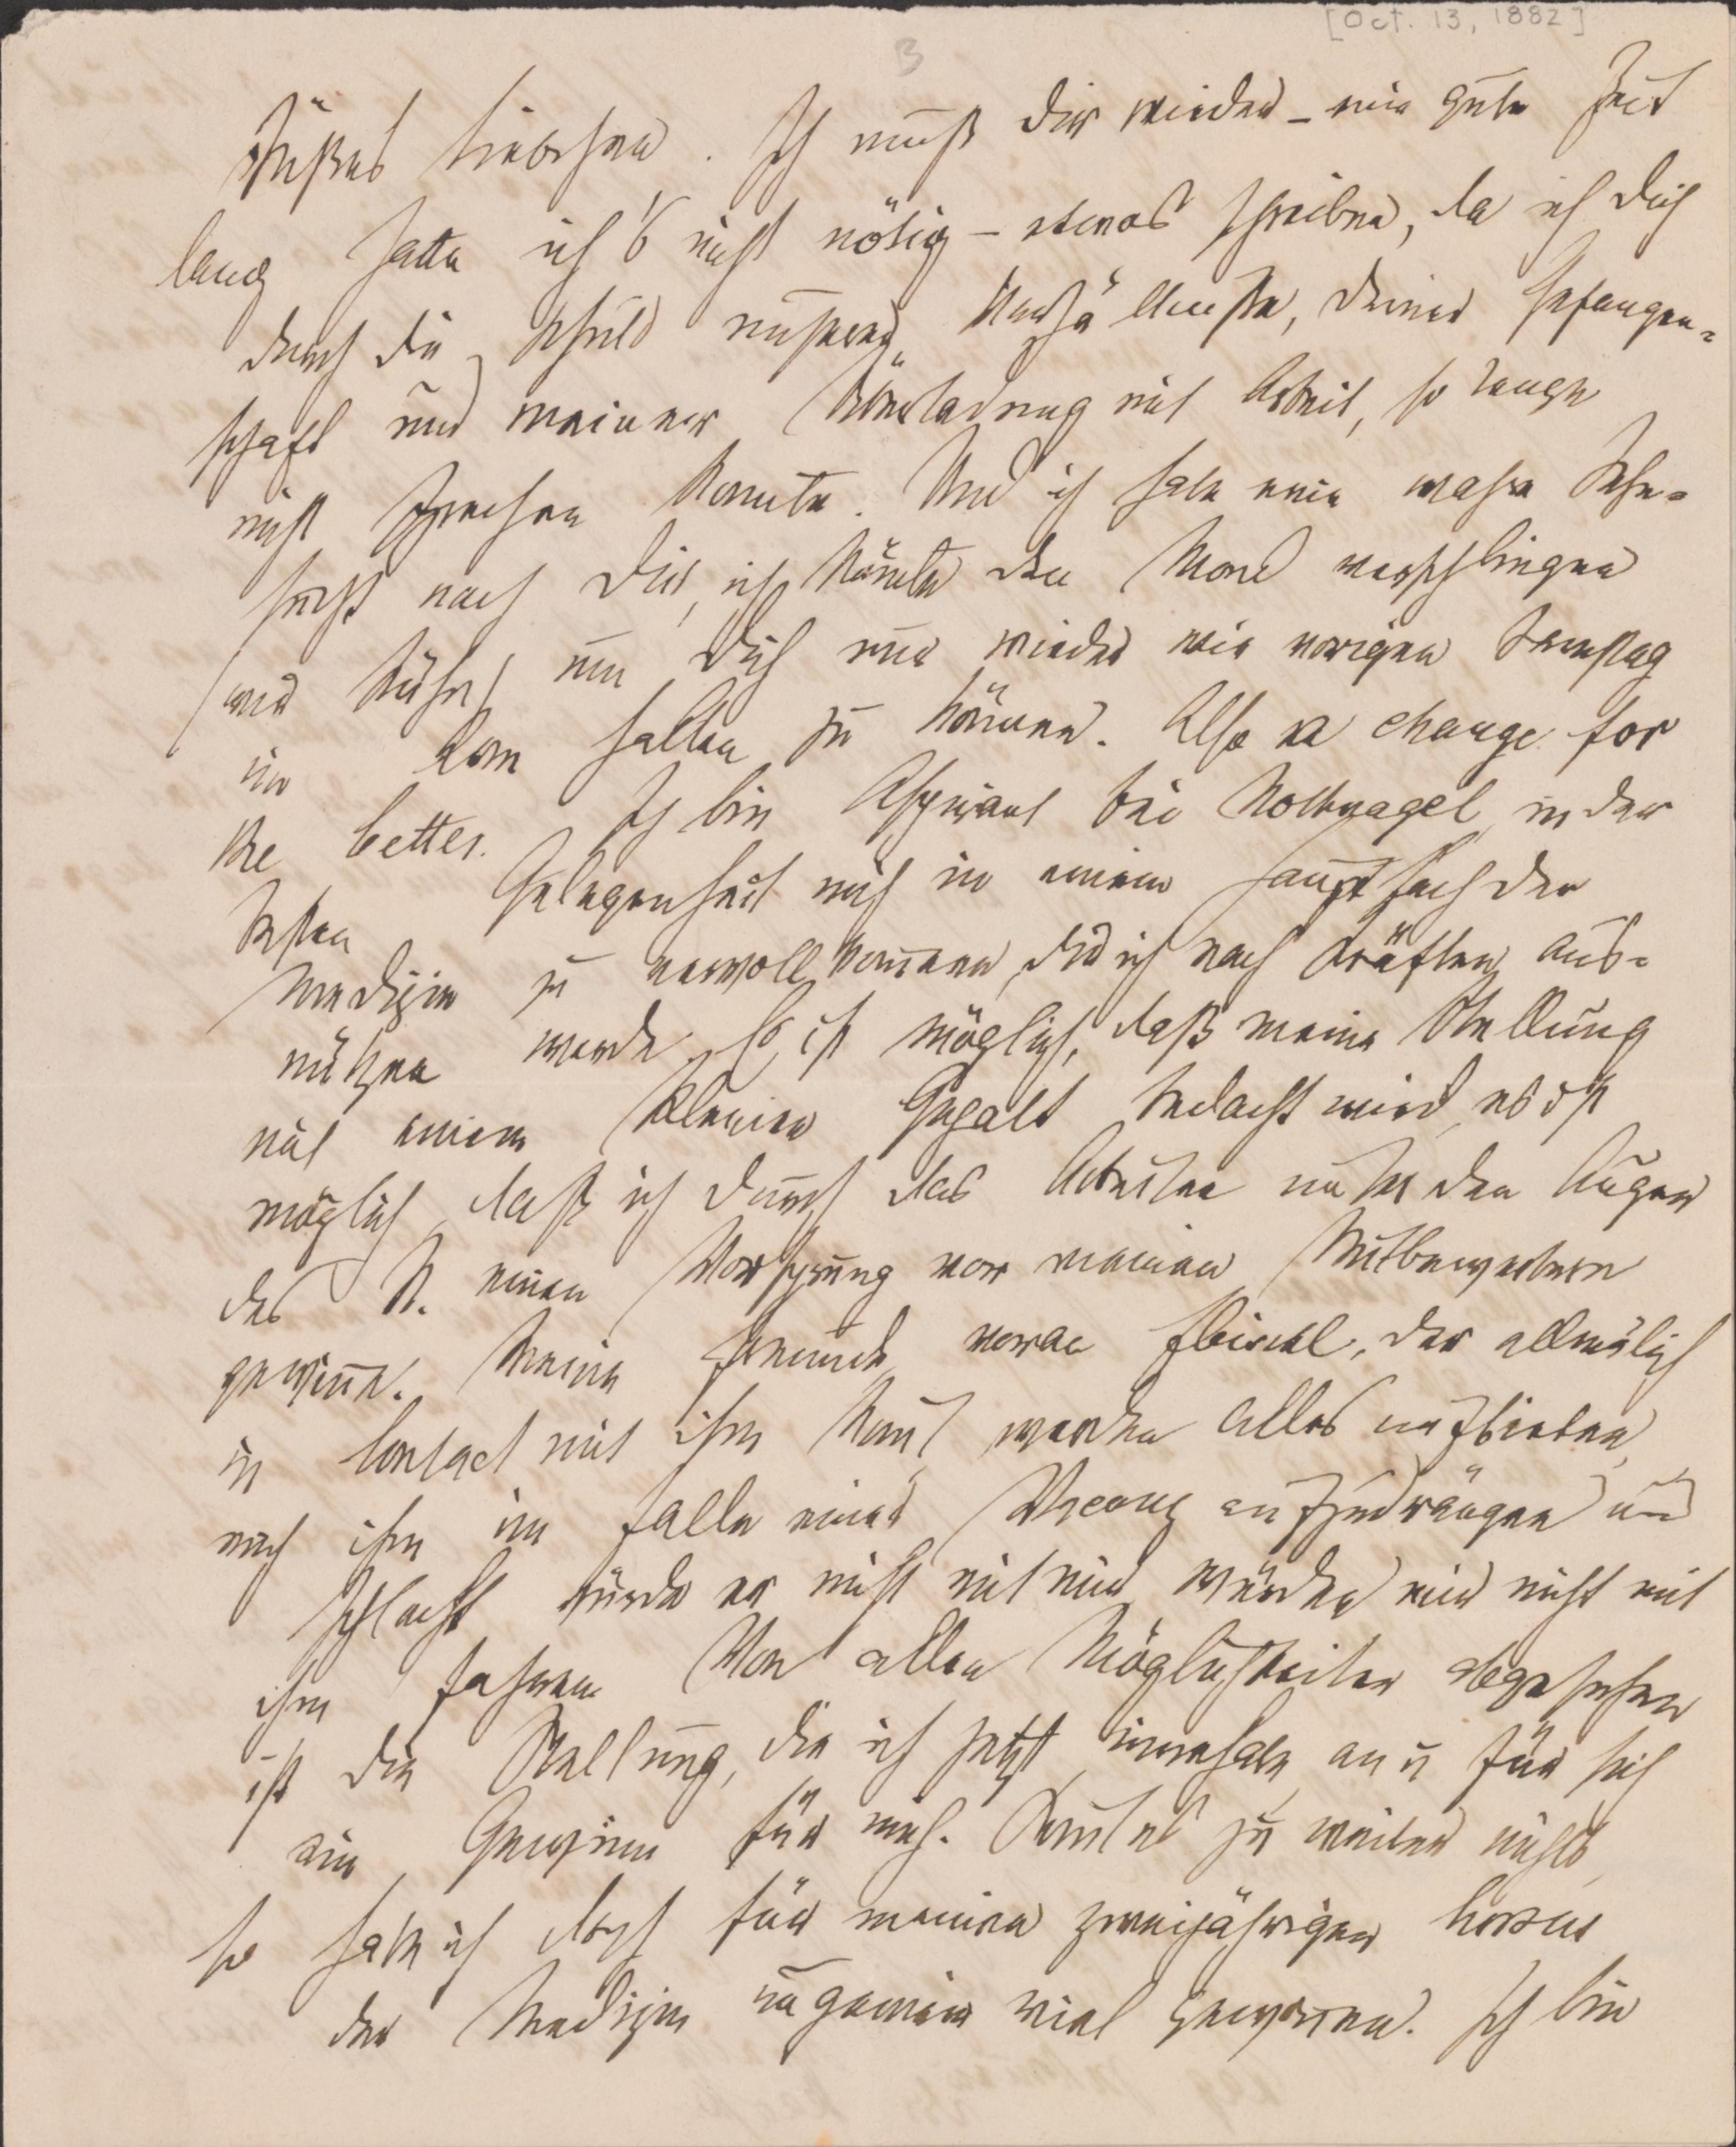 [Oct. 13, 1882]
3
Süßes Liebchen. Ich muß Dir wieder – eine gute Zeit
lang hatte ich's nicht nötig – etwas schreiben, da ich Dich
durch die Schuld unserer Verhältnisse, Deiner Gefangen-
schaft und meiner Überladung mit Arbeit, so lange
nicht sprechen konnte. Und ich habe eine wahre Sehn-
sucht nach Dir, ich könnte den Mond verschlingen
um Dich nur wieder wie vorigen Samstag
im Arm halten zu können. Also a change for
the better. Ich bin Aspirant bei Nothnagel, in der
besten Gelegenheit mich in einem Hauptfach der
Medizin zu vervollkommnen, die ich nach Kräften aus-
nützen werde. Es ist möglich, daß meine Stellung
mit einem kleinen Gehalt bedacht wird, es ist
möglich, daß ich durch das Arbeiten unter den Augen
des N. einen Vorsprung vor meinen Mitbewerbern
gewinne. Meine Freunde, voran Fleischl, der allmälich
in Contact mit ihm kommt, werden alles aufbieten,
mich ihm im Falle einer Vacanz aufzudrängen und
schlecht würde er nicht mit mir, würden wir nicht mit
ihm fahren. Von allen Möglichkeiten abgesehen
ist die Stellung, die ich jetzt innehabe, an u für sich
ein Gewinn für mich. Kommt es zu weiter nichts,
so habe ich doch für meinen zweijährigen Cursus
der Medizin ungemein viel gewonnen. Ich bin